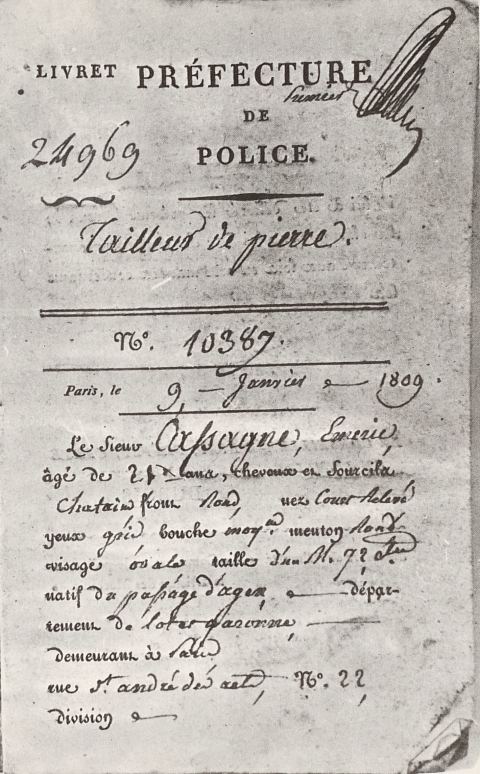 LIVRET PRÉFECTURE
DE
24969
POLICE.
Tailleur de pierre.
N°. 10387.
Paris, le 9 Janvier 1809.
Le Sieur Cassagne, Emeric,
âgé de ans, cheveux et sourcils
Chatain front Rond nez Court Relevé
yeux gris bouche moyne menton Rond
visage ovale taille d'un M. 72
natif du passage d'agen dépar-
tement de lot et garonne,
demeurant à Paris
rue St andré des arts, N°. 22
division